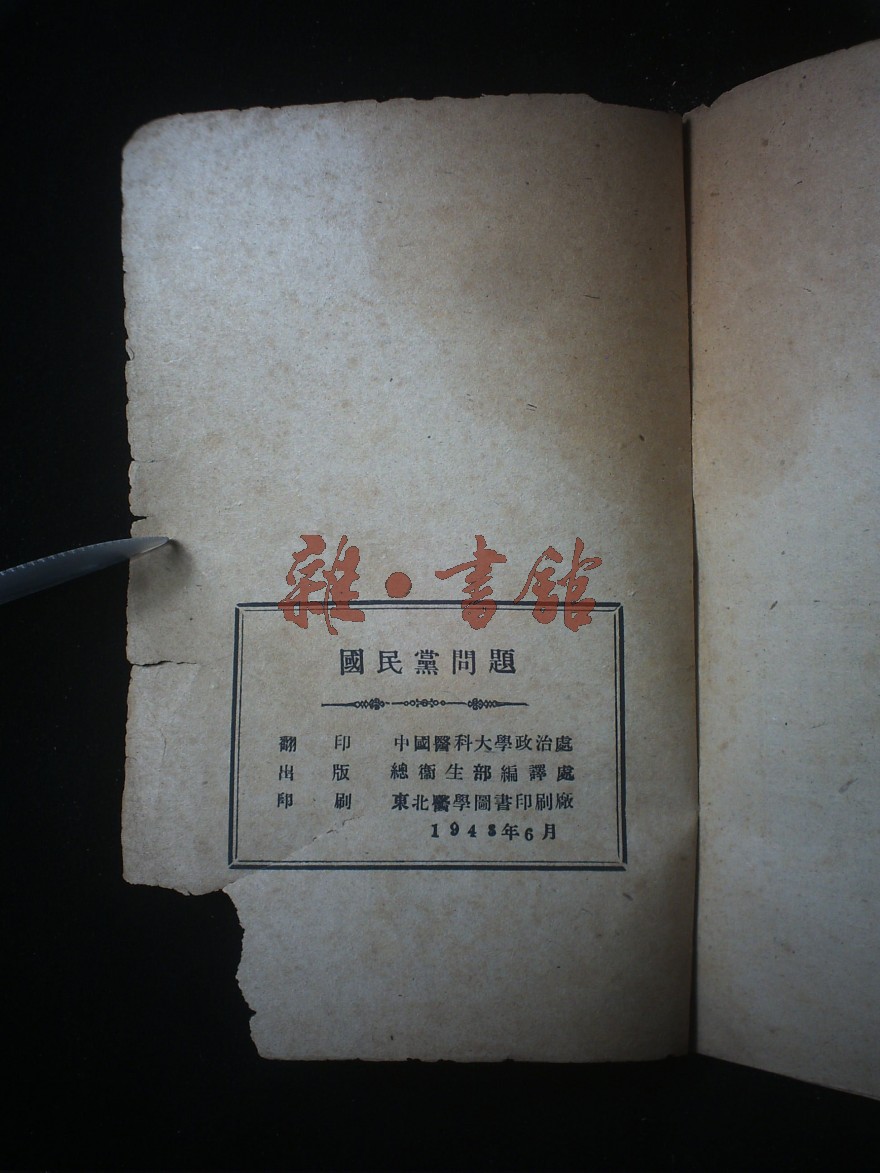 雜·書館
國民黨問題
翻印 中國醫科大學政治處
出版 總衛生部編譯處
印刷 東北醫學圖書印刷廠
1948年6月